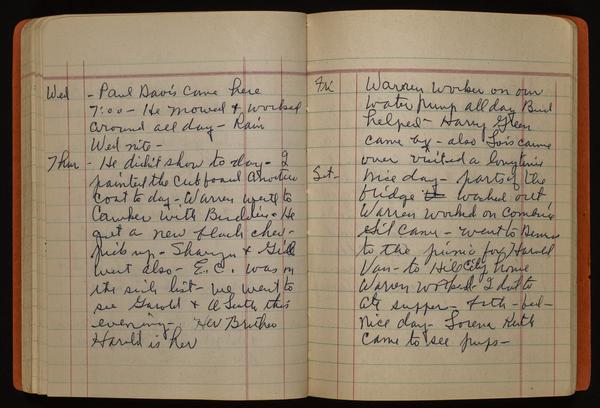 Wed - Paul Davis came here
7:00 - He mowed & worked
around all day - Rain
Wed nite -
Thur - He didn't show to day - I
painted the cubboard another
coat to day - Warren went to
with - He
got a new black chev -
pick up - Sharyn &
went also - E.C. was on
the sick list - we went to
see Harold & this
evening - Her Brother
Harold is her
Fri Warren worker on our
water pump all day Bud
helped - Harry Green
came by - also Lois came
over visited a longtime
Sat - Nice day - parts of the
fridge worked out
Warren worked on combine
Gil came - went to
to the picnic for Harold
Van - to Hill City nome
Warren I did to
ate supper - - bed -
Nice day - Lorena Ruth
came to see pups -